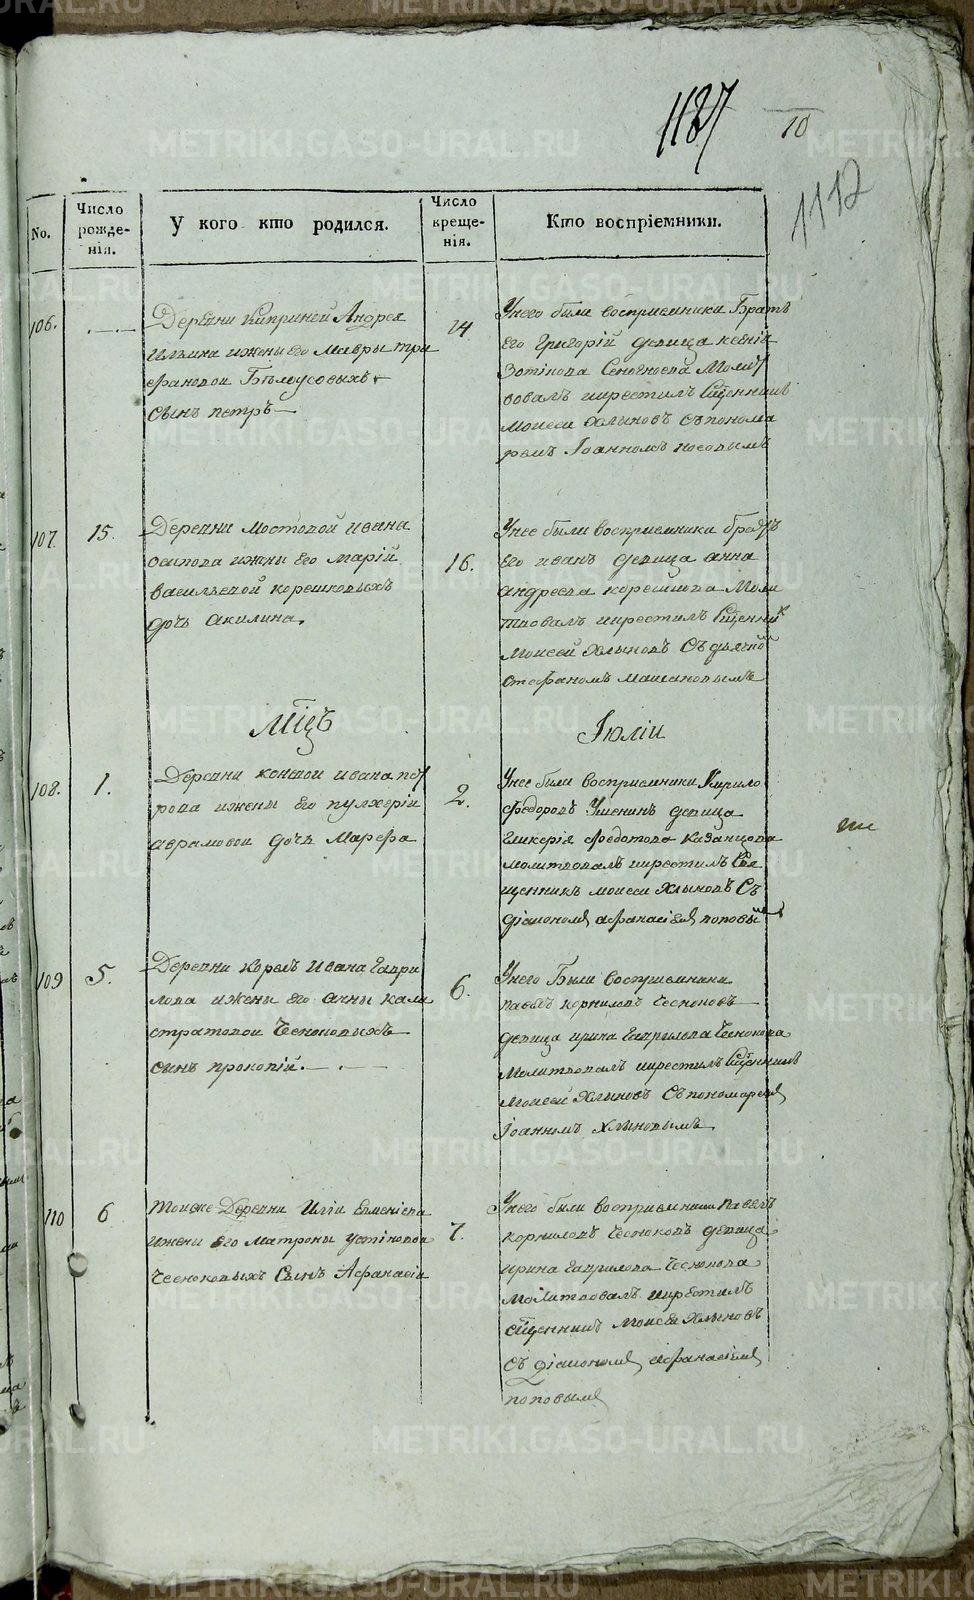 1137
10
1112
No.
Число рожде-нія.
У кого кто родился.
Число креще-нія.
Кто воспріемники.
106.
Деревни Киприней Андрея
Ильина ижены его Мавры три
фановой Бѣлоусовыхъ
сынъ петръ
14
Унего были восприемники Братъ
Его Григорій девица
Зотикова
вовалъ икрестилъ Сщенникъ
Моисеи Хлыновъ съ понома
ремъ Іоанномъ носовымъ
107.
15.
Деревни Мостовой ивана
осипова ижены Его Марій
васильевой корешковыхъ
дочь акилина.
16.
Унее были восприемники братъ
Его иванъ девица анна
андреева корешкова Моли
твовалъ икрестилъ Сщенникъ
Моисей Хлыновъ Съ дьячкой
стефаномъ
Мцъ
Іюліи
108.
1.
Деревни коневои ивана пет
рова ижены Его пулхеріи
аврамовои дочь Марѳа
2.
Унее были восприемники Кирило
Федоровъ девица
Гликерія федотова Казанцова
молитвовалъ икрестилъ Свя
щенникъ моисеи Хлыновъ Съ
діакономъ афанасіемъ поповымъ
109
5.
Деревни Корелъ Ивана Гаври
лова ижены Его анны кали
стратовои Чесноковыхъ
сынъ прокопій.
6.
Унего Были Восприемники
павелъ корниловъ Чесноковъ
девица ирина Гаврилова Чеснокова
Молитвовалъ икрестилъ Сщенникъ
Моисеи Хлыновъ Съ пономаремъ
Іоанномъ Хлыновымъ
110
6
Тоиже Деревни Иліи
ижены Его Матроны устиновои
Чесноковыхъ Сынъ Афанасіи
7.
Унего были восприемники павелъ
корниловъ Чесноковъ девица
ирина гаврилова Чеснокова
молитвовалъ икрестилъ
сщенникъ Моисеи Хлыновъ
съ діакономъ афанасіемъ
поповымъ
METRIKI.GASO-URAL.RU